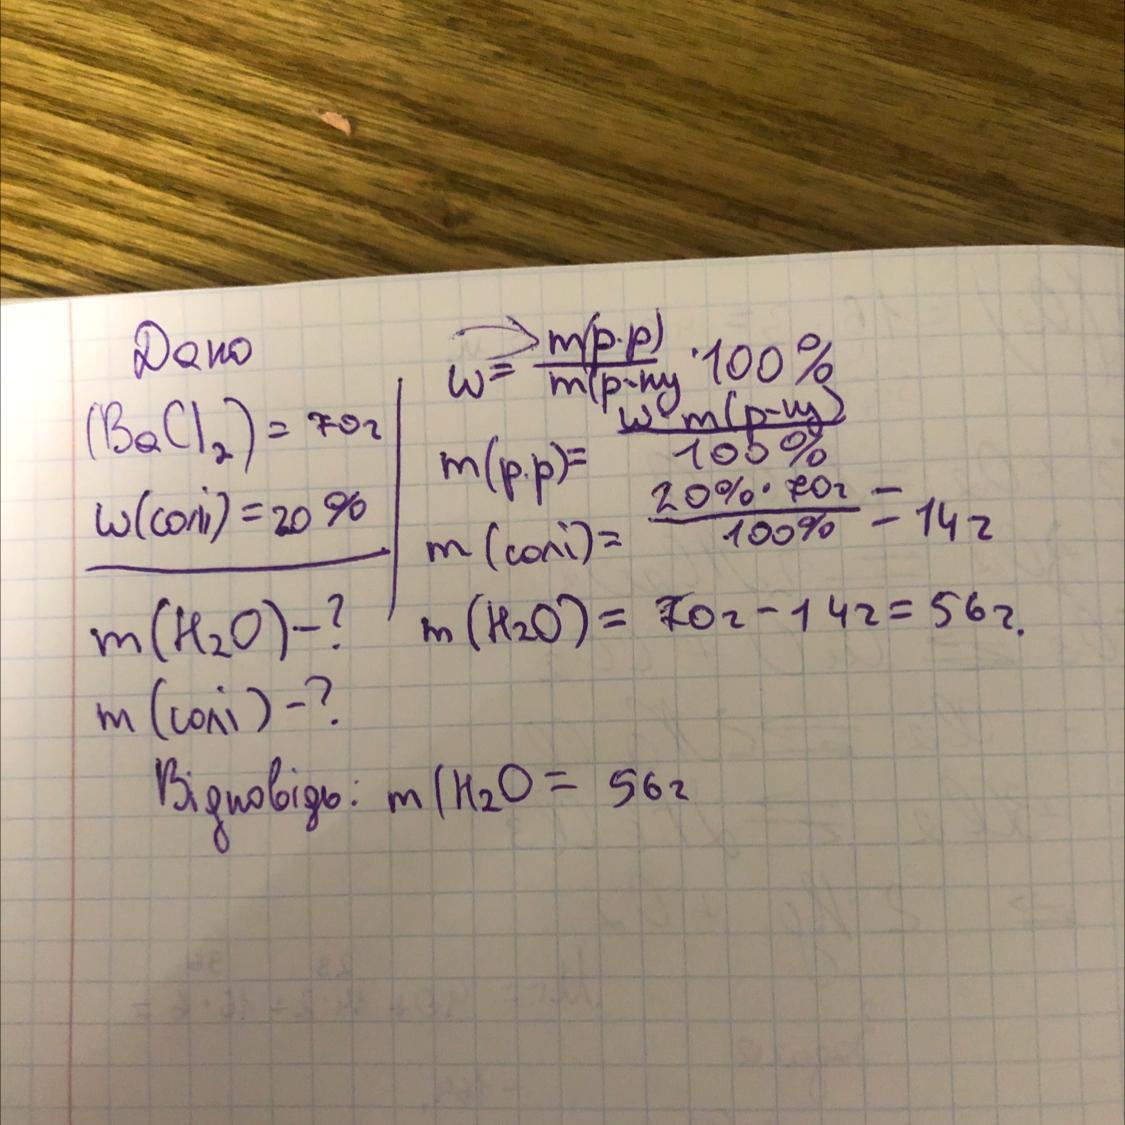 Дано
(BaCl₂) = 70г
w(солі) = 20%
m(H₂O) – ?
m(солі) – ?
w = m(р.р) / m(р-ну · 100%
m(р.р) = w · m(р-ну) / 100%
m(солі) = 20% · 70г / 100% = 14г
m(H₂O) = 70г – 14г = 56г.
Відповідь: m(H₂O = 56г